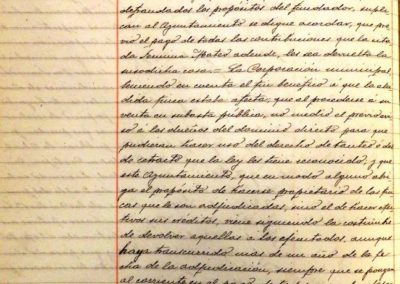 defraudados los propósitos del fundador, supli-
can al Ayuntamiento se digne acordar, que pre-
vio el pago de todas las contribuciones que la cita-
da Gemma Mateo adende, les sea devuelta la
susodicha casa = La Corporación municipal
teniendo en cuenta el fin benéfico á que la alu-
dida finca estaba afecta; que al procederse á su
venta en subasta pública, no medió el previo avi-
so á los dueños del dominio directo para que
pudieran hacer uso del derecho de tanteo ó des-
de retracto que la ley les tiene reconocido, y que
este Ayuntamiento, que en modo alguno abri-
ga el propósito de hacerse propietario de las fin-
cas que le son adjudicadas, sino el de hacer efec-
tivos sus créditos, viene siguiendo la costumbre
de devolver aquellas á los ejecutados, aunque
haya transcurrido más de un año de la fe-
cha de la adjudicación, siempre que se pongan
al corriente en el pago de